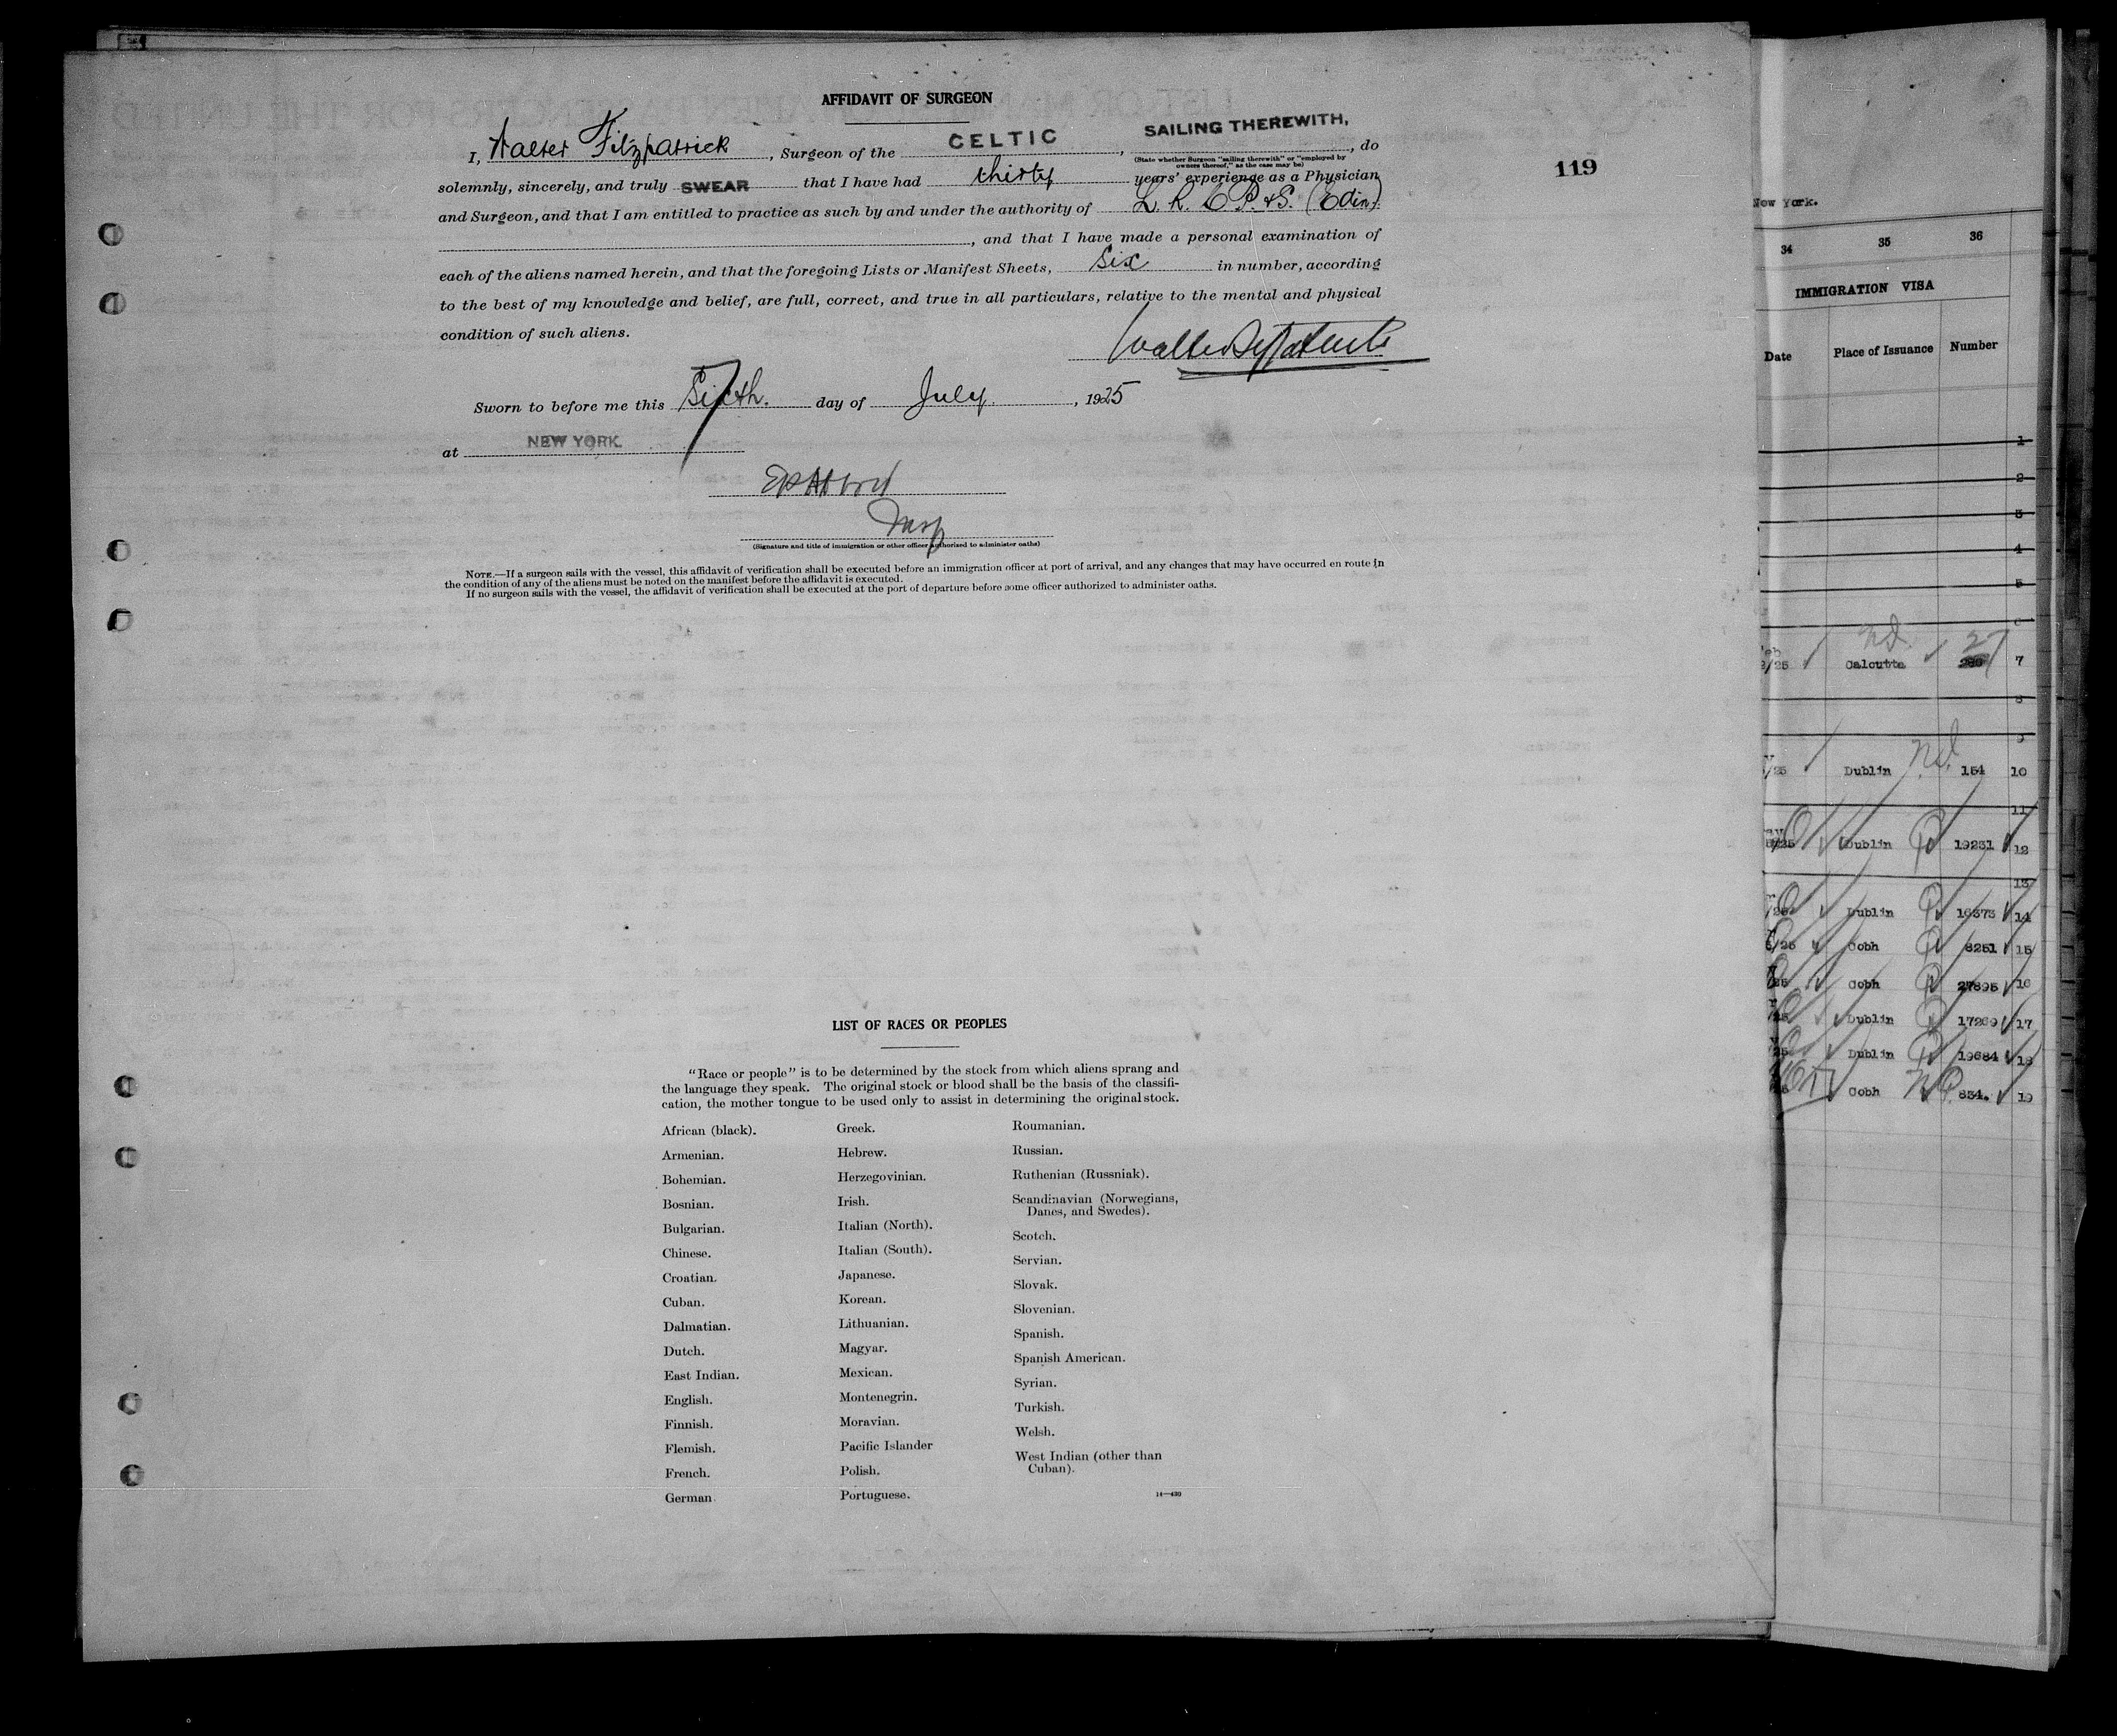 AFFIDAVIT OF SURGEON
I, Walter Fitzpatrick, Surgeon of the CELTIC, SAILING THEREWITH, do
(State whether Surgeon "sailing therewith" or "employed by
owners thereof," as the case may be)
119
solemnly, sincerely, and truly SWEAR that I have had thirty years' experience as a Physician
and Surgeon, and that I am entitled to practice as such by and under the authority of L. R. C. P. & S. (Edin)
, and that I have made a personal examination of
each of the aliens named herein, and that the foregoing Lists or Manifest Sheets, Six in number, according
to the best of my knowledge and belief, are full, correct, and true in all particulars, relative to the mental and physical
condition of such aliens.
Walter Fitzpatrick
Sworn to before me this Sixth. 7 day of July, 1925
at NEW YORK.
Insp
(Signature and title of immigration or other officer authorized to administer oaths)
NOTE.—If a surgeon sails with the vessel, this affidavit of verification shall be executed before an immigration officer at port of arrival, and any changes that may have occurred en route in
the condition of any of the aliens must be noted on the manifest before the affidavit is executed.
If no surgeon sails with the vessel, the affidavit of verification shall be executed at the port of departure before some officer authorized to administer oaths.
LIST OF RACES OR PEOPLES
"Race or people" is to be determined by the stock from which aliens sprang and
the language they speak. The original stock or blood shall be the basis of the classifi-
cation, the mother tongue to be used only to assist in determining the original stock.
African (black).
Armenian.
Bohemian.
Bosnian.
Bulgarian.
Chinese.
Croatian.
Cuban.
Dalmatian.
Dutch.
East Indian.
English.
Finnish.
Flemish.
French.
German.
Greek.
Hebrew.
Herzegovinian.
Irish.
Italian (North).
Italian (South).
Japanese.
Korean.
Lithuanian.
Magyar.
Mexican.
Montenegrin.
Moravian.
Pacific Islander
Polish.
Portuguese.
Roumanian.
Russian.
Ruthenian (Russniak).
Scandinavian (Norwegians,
Danes, and Swedes).
Scotch.
Servian.
Slovak.
Slovenian.
Spanish.
Spanish American.
Syrian.
Turkish.
Welsh.
West Indian (other than
Cuban).
14—439
New York.
34 35 36
IMMIGRATION VISA
Date Place of Issuance Number
1
2
3
4
5
6
/25 Calcutta nd. 27 7
8
9
/25 Dublin nd. 154 10
11
/25 Dublin 19231 12
13
/25 Dublin 16373 14
/25 Cobh 8251 15
/25 Cobh 27895 16
/25 Dublin 17269 17
/25 Dublin 19684 18
Cobh 834. 19